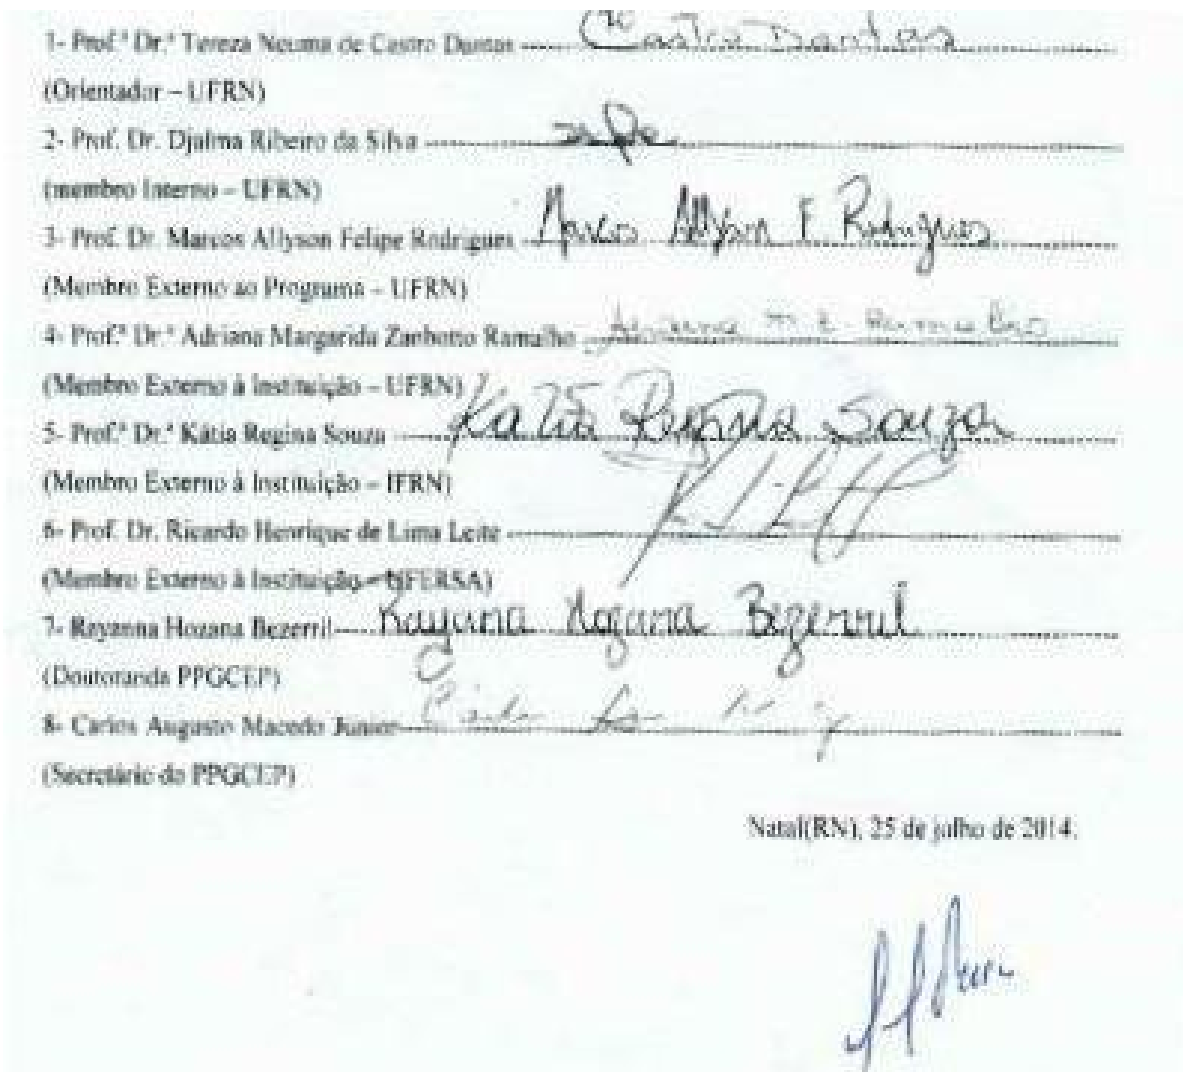 1- Prof.ª Dr.ª Tereza Neuma de Castro Dantas Castro Dantas
(Orientador – UFRN)
2- Prof. Dr. Djalma Ribeiro da Silva
(membro Interno – UFRN)
3- Prof. Dr. Marcos Allyson Felipe Rodrigues Marcos Allyson F. Rodrigues
(Membro Externo ao Programa – UFRN)
4- Prof.ª Dr.ª Adriana Margarida Zanbotto Ramalho Adriana M. Z. Ramalho
(Membro Externo à Instituição – UFRN)
5- Prof.ª Dr.ª Kátia Regina Souza Katia Regina Souza
(Membro Externo à Instituição – IFRN)
6- Prof. Dr. Ricardo Henrique de Lima Leite
(Membro Externo à Instituição – UFERSA)
7- Rayanna Hozana Bezerril Rayana Hozana Bezerril
(Doutoranda PPGCEP)
8- Carlos Augusto Macedo Junior
(Secretário do PPGCEP)
Natal(RN), 25 de julho de 2014.